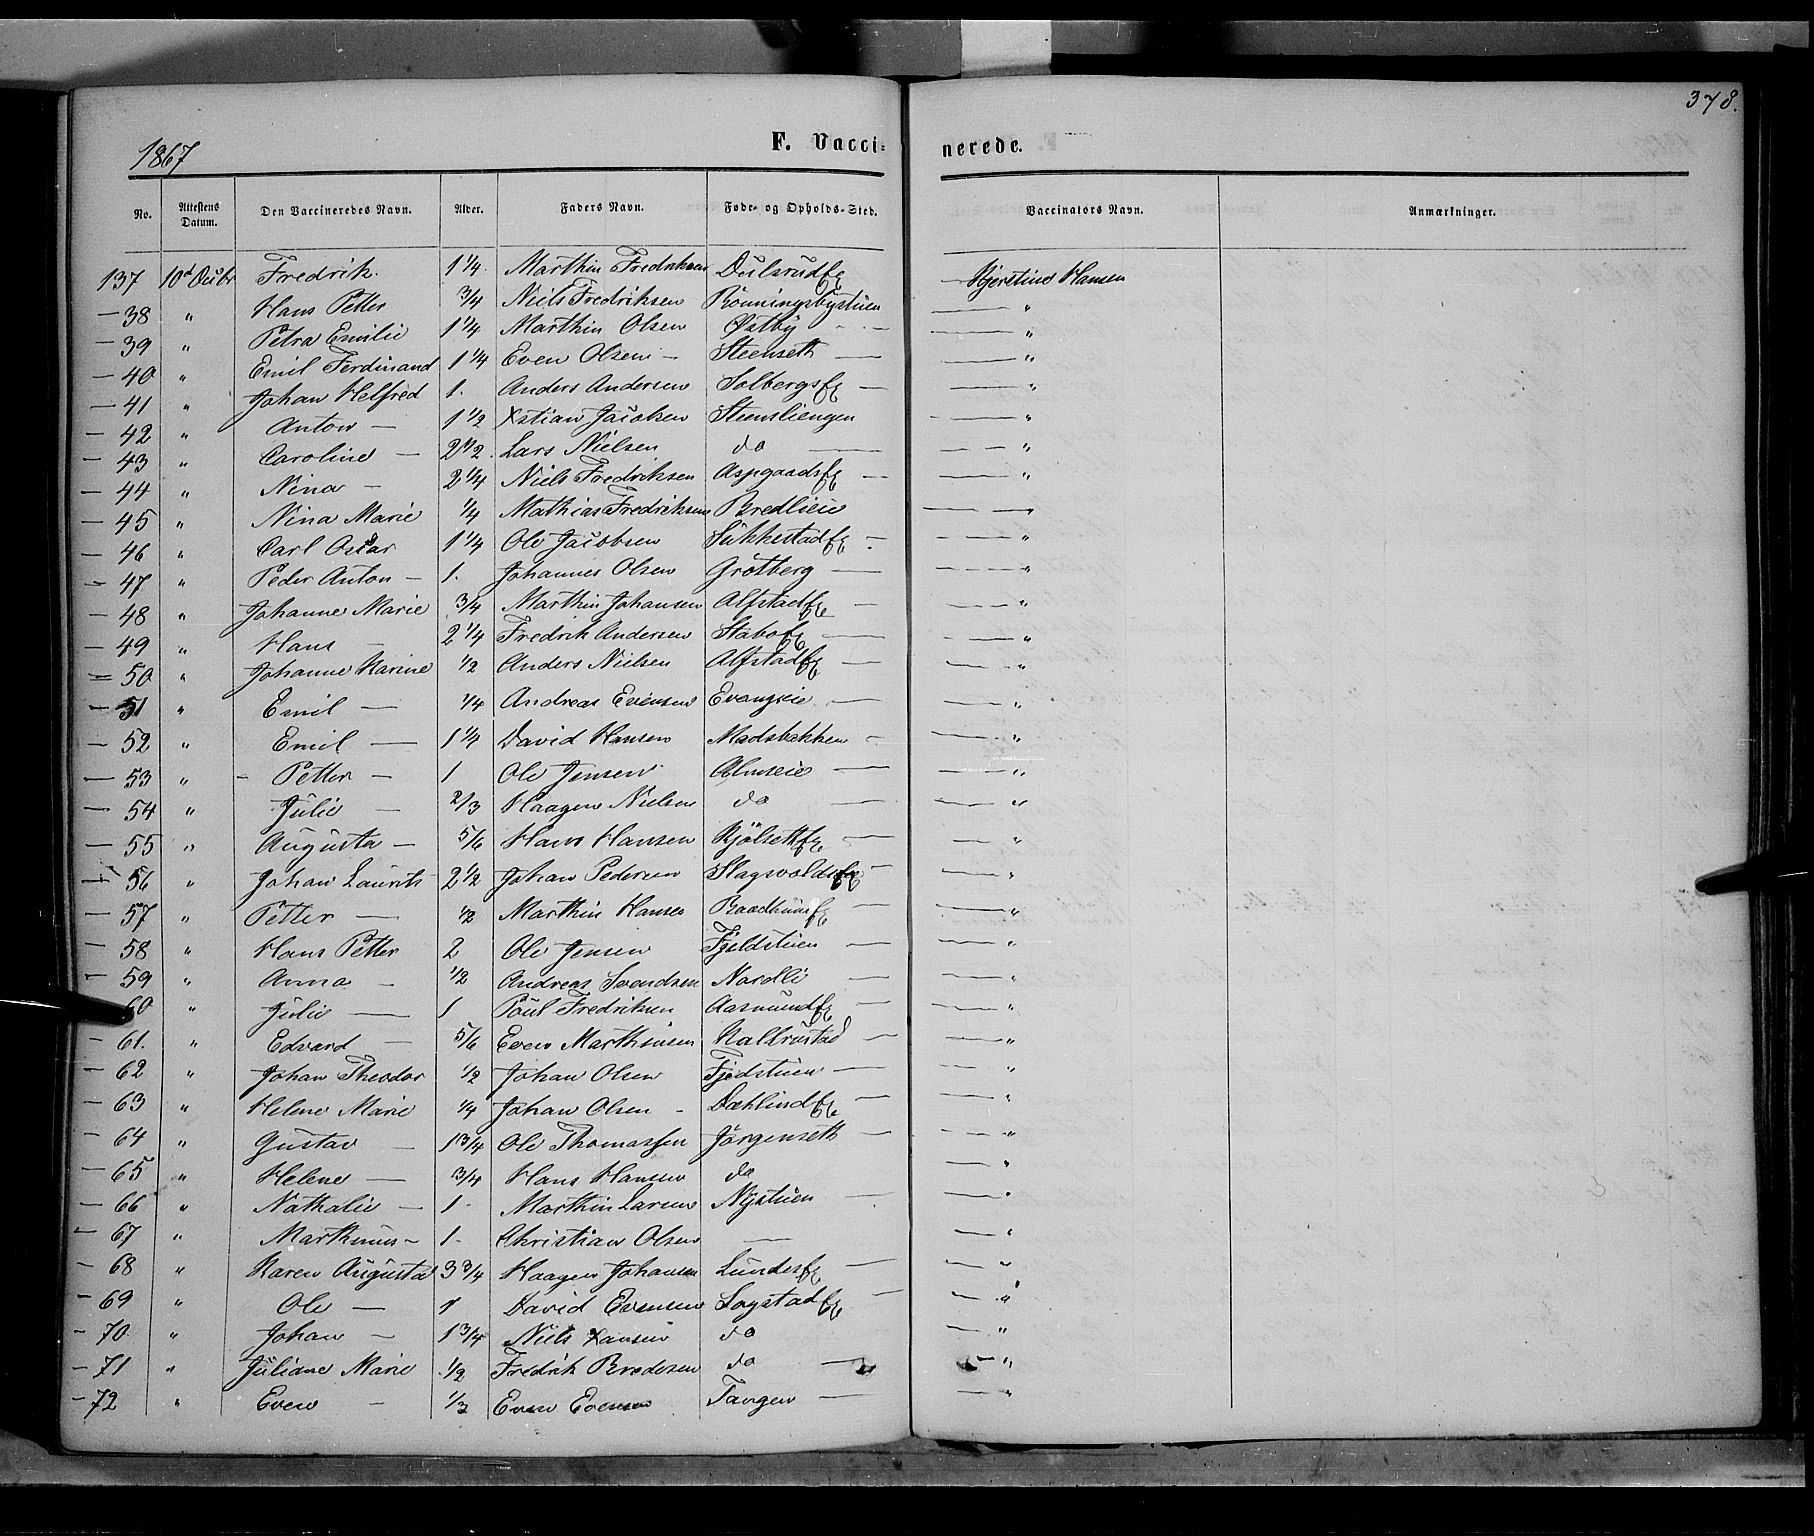 378.
1867
F. Vacci-
nerede.
No. Attestens Datum. Den Vaccineredes Navn. Alder. Faders Navn. Føde- og Opholds-Sted. Vaccinators Navn. Anmærkninger.
137 10d Fredrik. 1 1/4. Marthin Fredriksen Dulsrudfg Kjerstine Hansen
— 38 " Hans Petter 3/4 Niels Fredriksen Rönningsbystuen — "
— 39 " Petra Emilie 1 1/4 Marthin Olsen Østby — "
— 40 " Emil Ferdinand 1 1/4 Even Olsen — Steenseth — — "
— 41 " Johan Helfred 1. Anders Andersen Solbergsfg — — "
— 42 " Anton — 1 1/2 Xstian Jacobsen Steensliengen — "
— 43 " Caroline — 2 1/2. Lars Nielsen do — — "
— 44 " Nina — 2 1/4 Niels Fredriksen Aspgaardsfg — — "
— 45 " Nina Marie 1/4 Mathias Fredriksen Bredlieie — "
— 46 " Carl Oscar 1 1/4 Ole Jacobsen Sukkestadfg — — "
— 47 " Peder Anton — 1. Johannes Olsen Grötberg — — "
— 48 " Johanne Marie 3/4 Marthin Johansen Alfstadfg — — "
— 49 " Hans — 2 1/4 Fredrik Andersen Stabofg — — "
— 50 " Johanne Karine 1/2 Anders Nielsen Alfstadfg — — "
— 51 " Emil — 1/4 Andreas Evensen Evangseie — — "
— 52 " Emil — 1 1/4 David Hansen Madsbakken — — "
— 53 " — Petter — 1 Ole Jensen Almseie — — "
— 54 " Julie — 2/3 Haagen Nielsen do — — "
— 55 " Augusta — 5/6 Hans Hansen Kjölsethfg — — "
— 56 " Johan Laurits 2 1/2 Johan Pedersen Slagsvoldsfg — — "
— 57 " Petter — 1/2 Marthin Hansen — — "
— 58 " Hans Petter 2 Ole Jensen Fjeldstuen — — "
— 59 " Anna — 1/2 Andreas Svendsen Nordli — — "
60 " Julie — 1 Poul Fredriksen Aasmundfg — — "
— 61. " Edvard — 5/6 Even Marthinsen Kaldrustad — — "
— 62 " Johan Theodor 1/2 Johan Olsen Fjeldstuen — — "
— 63 " Helene Marie 1/4 Johan Olsen — Dæhlindfg — — "
— 64 " Gustav — 1 3/4 Ole Thomassen Jörgenseth — — "
— 65 " Helene — 3/4 Hans Hansen do — "
— 66 " Nathalie — 1. Marthin Larsen Nystuen — — "
— 67 " Marthinus — 1. Christian Olsen — — "
— 68 " Karen Augusta 3 3/4 Haagen Johansen Lundesfg — — "
— 69 " Ole — 1 David Evensen Sogstadfg — — "
— 70. " Johan — 1 3/4 Niels Hansen do — "
— 71 " Juliane Marie 1/2 Fredrik Bredesen do — — "
— 72 " Even — 1/3 Even Evensen Tangen — — "